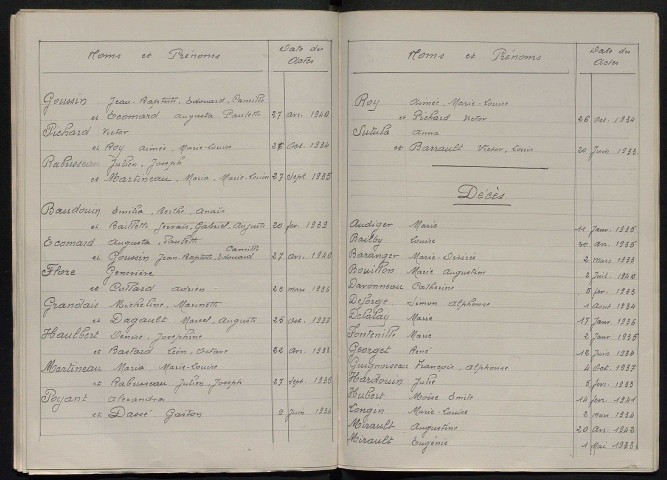 Noms et Prénoms Date des Actes
Goussin Jean-Baptiste, Edouard, Camille
et Ecomard Augusta Paulette 27 avr. 1940
Pichard Victor
et Roy Aimée, Marie-Louise 26 Oct. 1934
Rabusseau Julien, Joseph
et Martineau, Maria, Marie-Louise 27 Sept 1935
Baudouin Emilia, Berthe, Anaïs
et Gabriel 20 fev. 1933
Ecomard Augusta, Paulette
Camille
et Goussin Jean-Baptiste, Edouard 27 avr. 1940
Flore Geneviève
et Collard Adrien 28 mars 1936
Grandais Micheline,
et Dagault Marcel, Auguste 25 Oct.
Haulbert Denise, Joséphine
et Bastard Léon, 22 avr.
Martineau Maria Marie-Louise
et Rabusseau Julien, Joseph 27 Sept. 1935
Poyant Alexandra
et Dassé Gaston 9 Juin 1934
Noms et Prénoms Date des Actes
Roy Aimée, Marie-Louise
et Pichard Victor 26 Oct. 1934
Sutula Anna
et Barrault Victor, Louis 20 Juin 1933
Décès
Audiger Marie Janv. 1935
Bailby Louise 20 avr. 1935
Baranger Marie-Désirée 2 mars 1933
Bouillon Marie Augustine 2 Juil. 1940
Davonneau Catherine 8 fev. 1933
Deforge Simon Alphonse 1 Août 1934
Delalay Marie 17 Janv. 1936
Fontenille Marie 2 Janv 1935
Georget René 12 Juin 1934
Guignoiseau François, Alphonse 4 Oct. 1937
Hardouin Julie 5 fev. 1933
Hubert Moïse Emile 14 fev. 1941
Longin Marie-Louise 2 1934
Mirault Augustine 20 Avr. 1942
Mirault Eugénie 1 Mai 1933